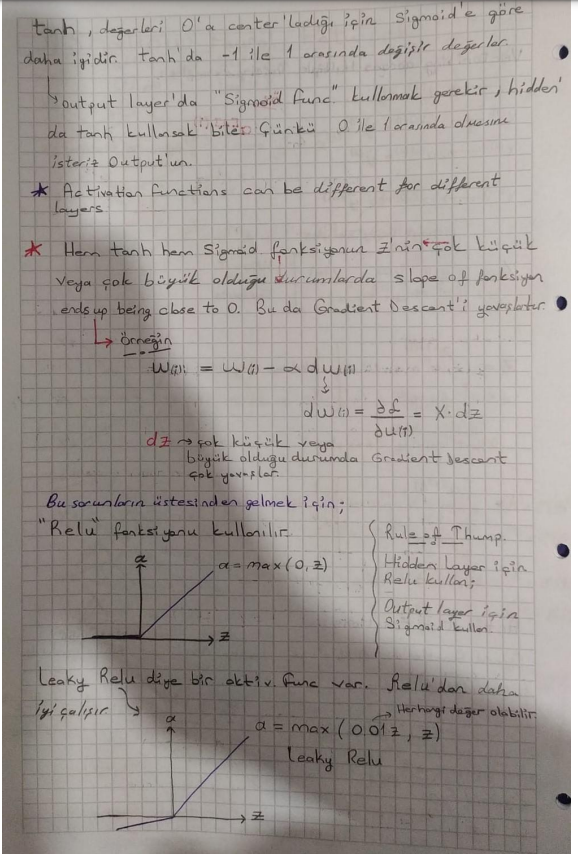 tanh, değerleri 0'a center'ladığı için Sigmoid'e göre
daha iyidir. tanh'da -1 ile 1 arasında değişir değerler.
output layer'da "Sigmoid Func" kullanmak gerekir, hidden'
da tanh kullansak bile. Çünkü 0 ile 1 arasında olmasını
isteriz Output'un.
* Activation functions can be different for different
layers.
* Hem tanh hem Sigmoid fonksiyonun z'nin çok küçük
veya çok büyük olduğu durumlarda slope of fonksiyon
ends up being close to 0. Bu da Gradient Descant'i yavaşlatır.
↳ örneğin
W(1): = W(1) - α dw(1)
dw(1) = ∂L / ∂w(1) = X. dz
dz → çok küçük veya
büyük olduğu durumda Gradient Descent
çok yavaşlar.
Bu sorunların üstesinden gelmek için;
"Relu" fonksiyonu kullanılır.
a
a = max(0, z)
z
Rule of Thump.
Hidden Layer için
Relu kullan;
Output layer için
Sigmoid kullan
Leaky Relu diye bir aktiv. func var. Relu'dan daha
iyi çalışır.
Herhangi değer olabilir.
a
a = max(0.01z, z)
Leaky Relu
z